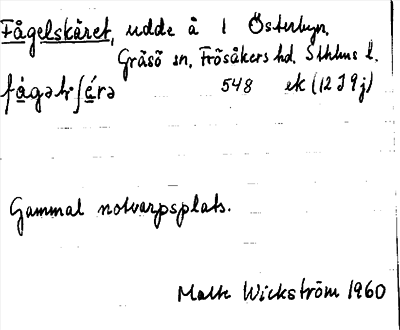 Fågelskäret, udde å 1 Österbyn,
Gräsö sn, Frösåkers hd. Sthlms l.
548 ek (12 I 9 j)
Gammal notvarpsplats.
Wickström 1960